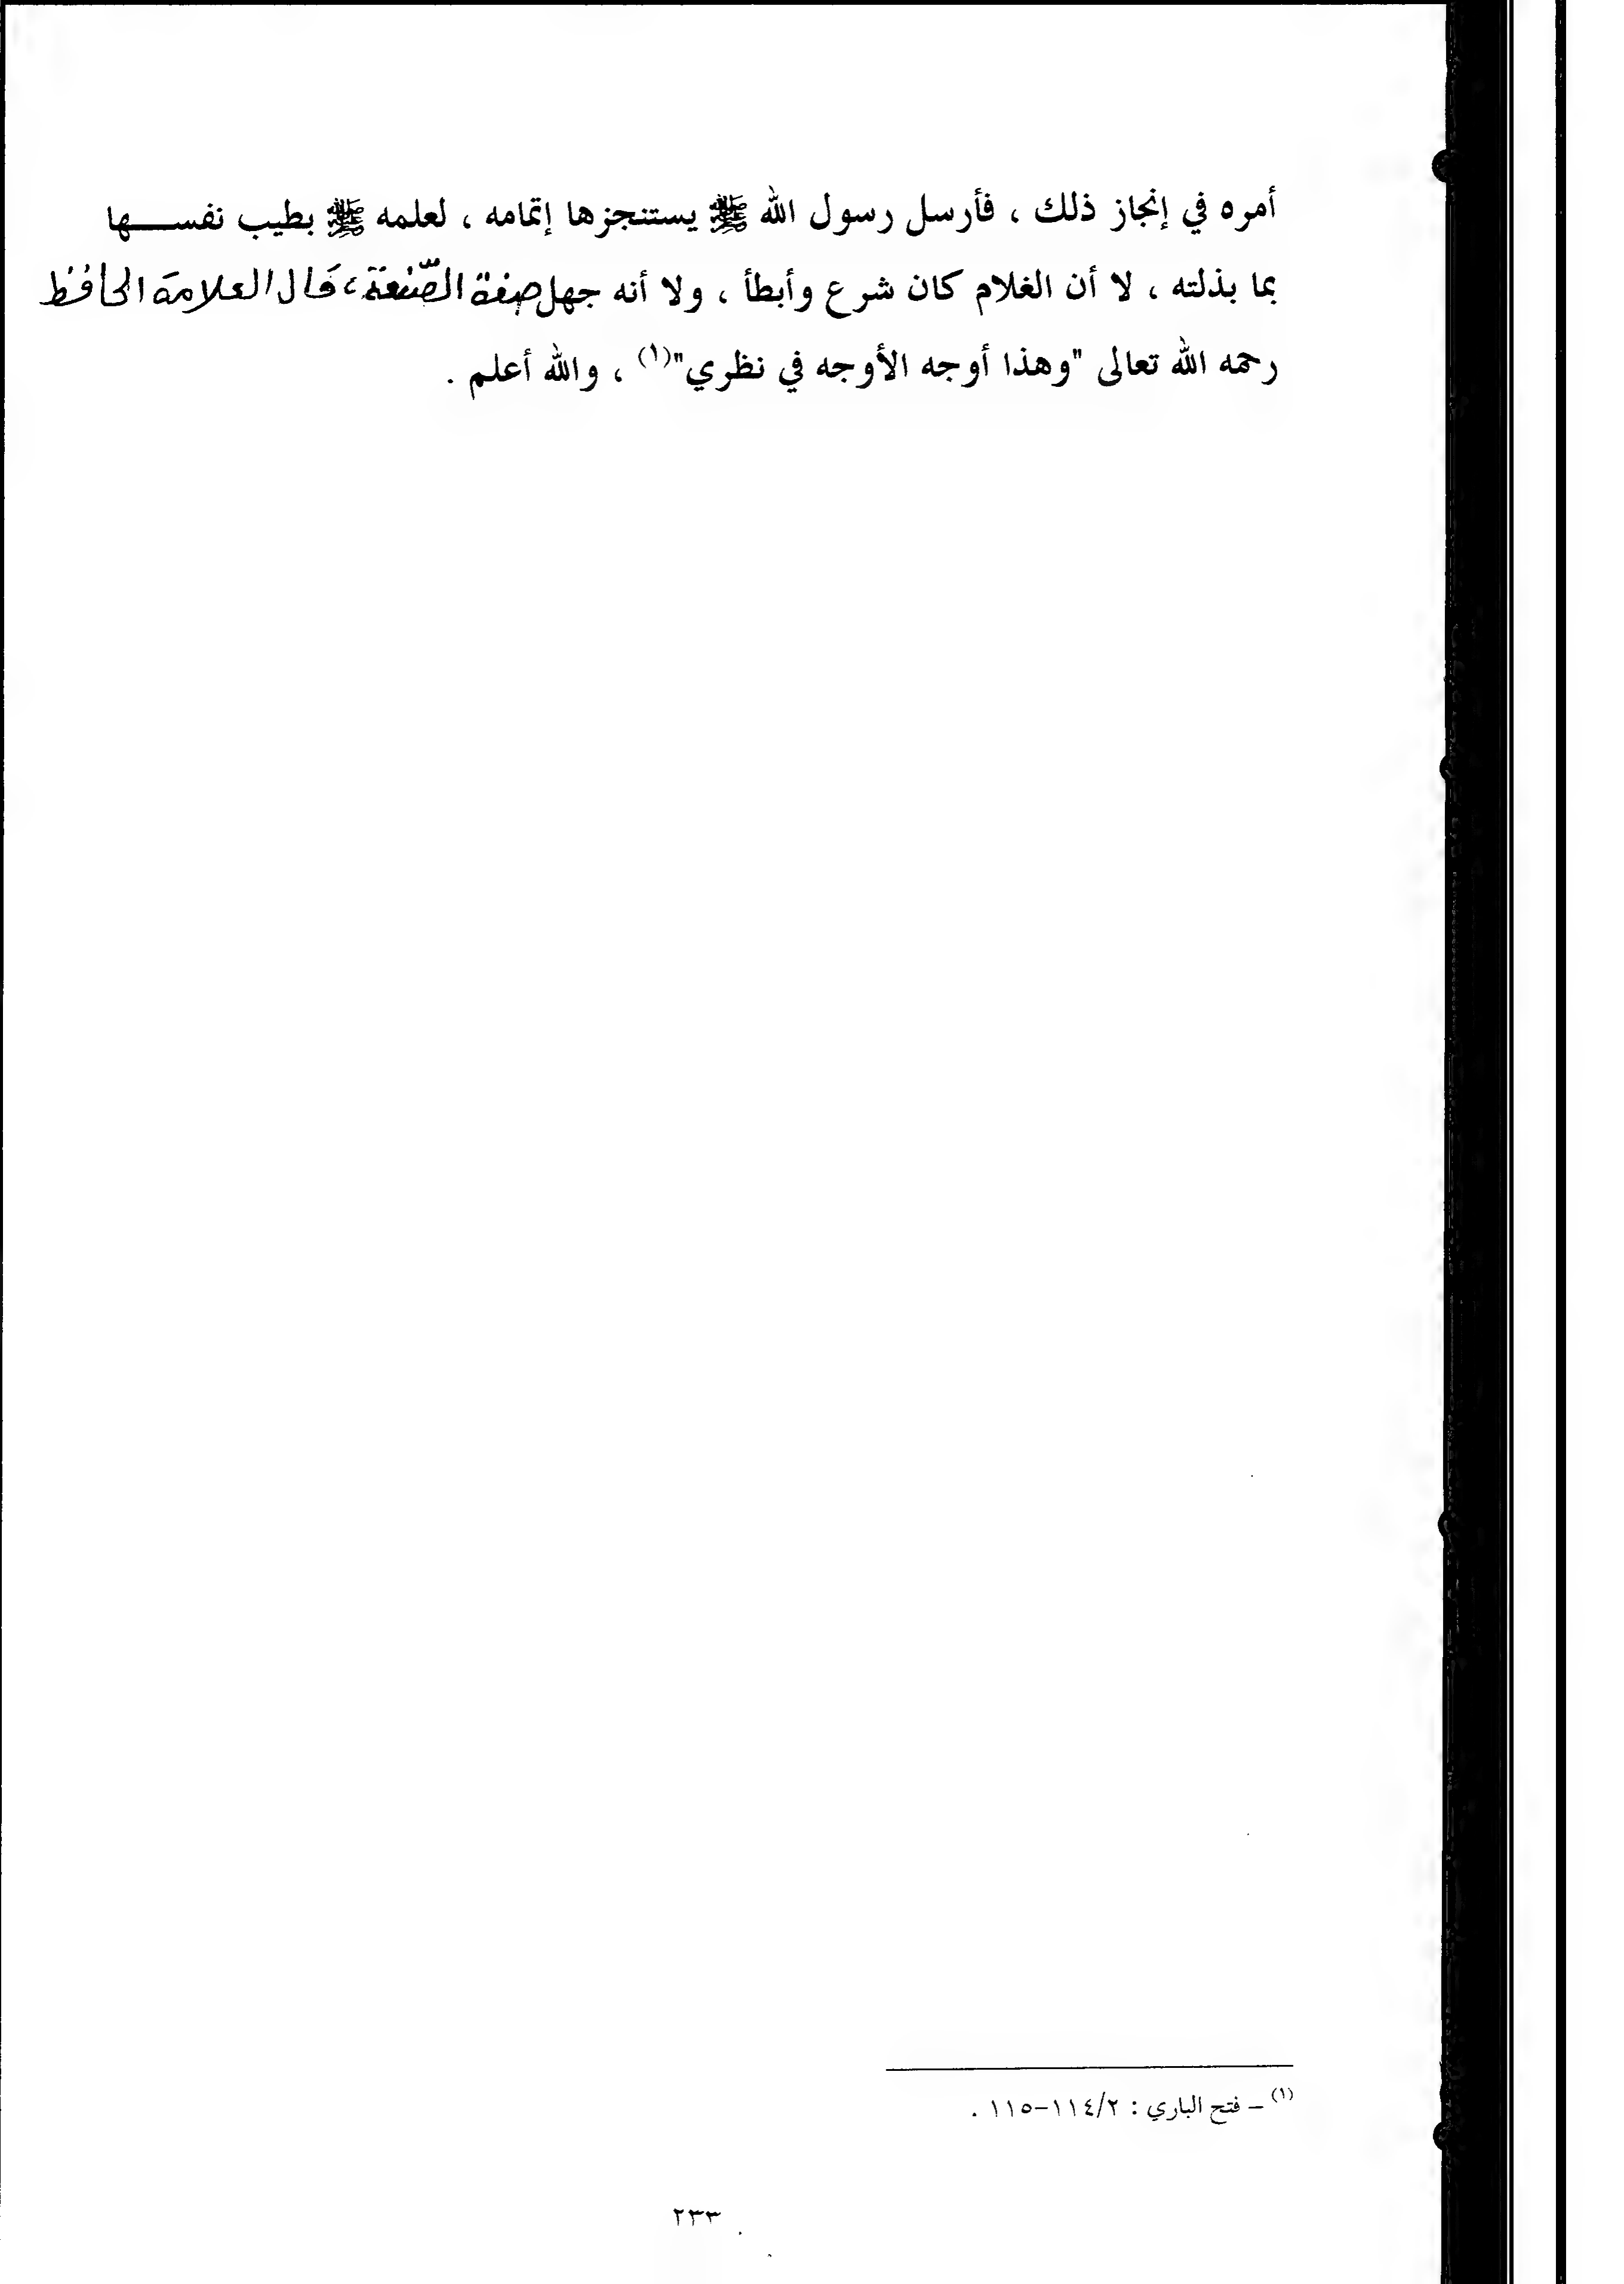 أمره في إنجاز ذلك ، فأرسل رسول الله ﷺ يستنجزها إتمامه ، لعلمه ﷺ بطيب نفســـها
بما بذلته ، لا أن الغلام كان شرع وأبطأ ، ولا أنه جهل صفة الصّنعة ، قال العلامة الحافظ
رحمه الله تعالى "وهذا أوجه الأوجه في نظري"(١) ، والله أعلم .
(١) – فتح الباري : ٢/١١٤-١١٥ .
٢٣٣